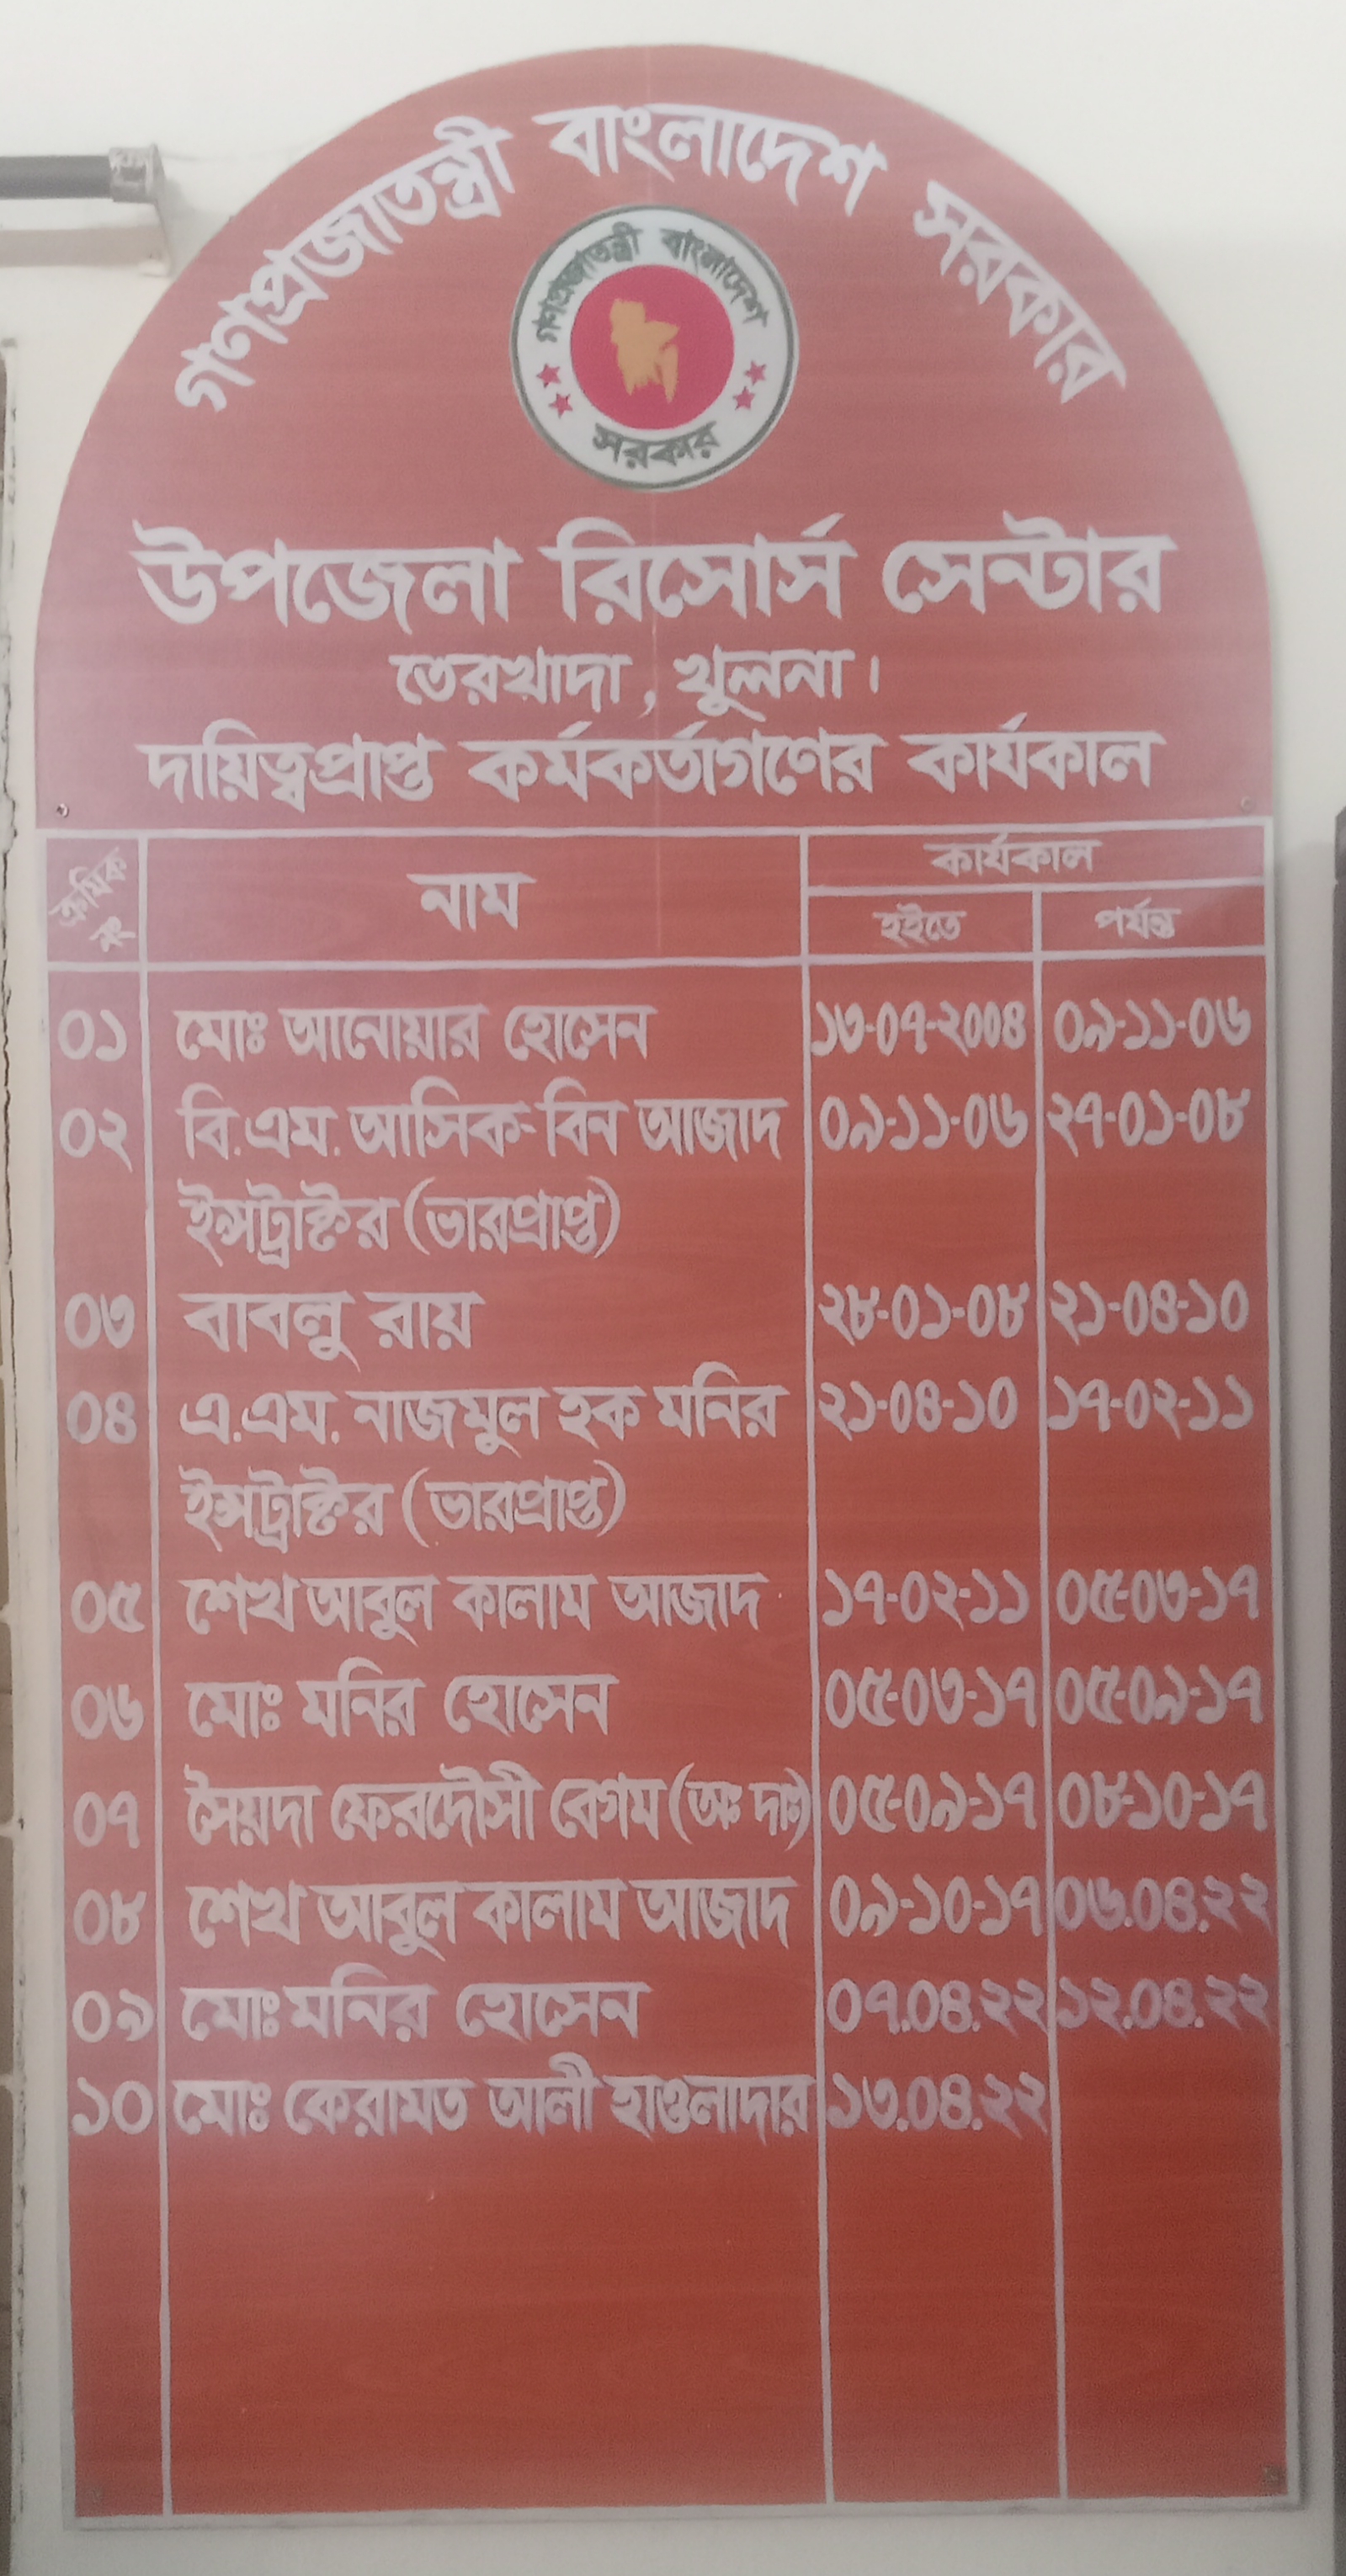 গণপ্রজাতন্ত্রী বাংলাদেশ সরকার
গণপ্রজাতন্ত্রী বাংলাদেশ
সরকার
উপজেলা রিসোর্স সেন্টার
তেরখাদা, খুলনা।
দায়িত্বপ্রাপ্ত কর্মকর্তাগণের কার্যকাল
ক্রমিক নং নাম কার্যকাল
হইতে পর্যন্ত
০১ মোঃ আনোয়ার হোসেন ১৩-০৭-২০০৪ ০৯-১১-০৬
০২ বি.এম. আসিক-বিন আজাদ ০৯-১১-০৬ ২৭-০১-০৮
ইন্সট্রাক্টর (ভারপ্রাপ্ত)
০৩ বাবলু রায় ২৮-০১-০৮ ২১-০৪-১০
০৪ এ.এম. নাজমুল হক মনির ২১-০৪-১০ ১৭-০২-১১
ইন্সট্রাক্টর (ভারপ্রাপ্ত)
০৫ শেখ আবুল কালাম আজাদ ১৭-০২-১১ ০৫-০৩-১৭
০৬ মোঃ মনির হোসেন ০৫-০৩-১৭ ০৫-০৯-১৭
০৭ সৈয়দা ফেরদৌসী বেগম (অঃ দাঃ) ০৫-০৯-১৭ ০৮-১০-১৭
০৮ শেখ আবুল কালাম আজাদ ০৯-১০-১৭ ০৬.০৪.২২
০৯ মোঃ মনির হোসেন ০৭.০৪.২২ ১২.০৪.২২
১০ মোঃ কেরামত আলী হাওলাদার ১৩.০৪.২২